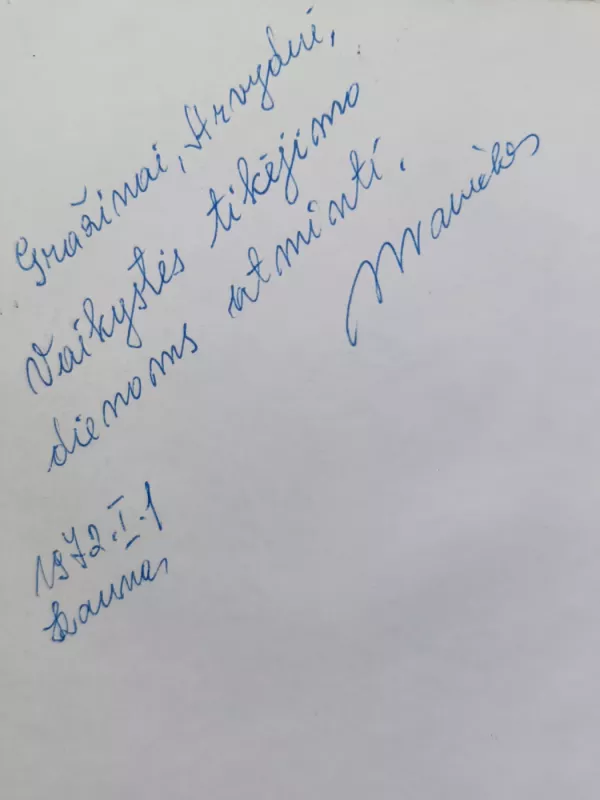 Gražinai, Arvydui,
Vaikystės tikėjimo
dienoms atminti.
1972.I.1
Kaunas